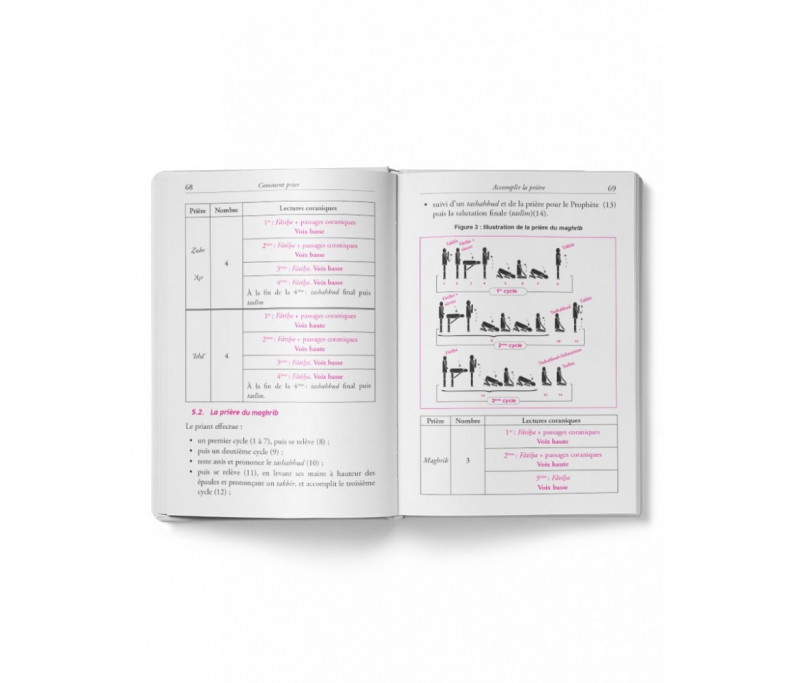 68
Comment prier
Prière Nombre Lectures coraniques
Zuhr
'Aṣr
4
1er : Fâtiḥa + passages coraniques
Voix basse
2ème : Fâtiḥa + passages coraniques
Voix basse
3ème : Fâtiḥa. Voix basse
4ème : Fâtiḥa. Voix basse
À la fin de la 4ème : tashahhud final puis
taslîm.
'Ishâ'
4
1er : Fâtiḥa + passages coraniques
Voix haute
2ème : Fâtiḥa + passages coraniques
Voix haute
3ème : Fâtiḥa. Voix basse
4ème : Fâtiḥa. Voix basse
À la fin de la 4ème : tashahhud final puis
taslîm.
5.2. La prière du maghrib
Le priant effectue :
• un premier cycle (1 à 7), puis se relève (8) ;
• puis un deuxième cycle (9) ;
• reste assis et prononce le tashahhud (10) ;
• puis se relève (11), en levant ses mains à hauteur des
épaules et prononçant un takbîr, et accomplit le troisième
cycle (12) ;
Accomplir la prière
69
• suivi d'un tashahhud et de la prière pour le Prophète (13)
puis la salutation finale (taslîm)(14).
Figure 3 : Illustration de la prière du maghrib
Takbîr
Fâtiḥa +
Takbîr
1 2 3 4 5 6 7 8
1er cycle
Fâtiḥa +
Tashahhud
Takbîr
9 10 11
2ème cycle
Fâtiḥa
Taslîm
12 13 14
3ème cycle
Prière Nombre Lectures coraniques
Maghrib
3
1er : Fâtiḥa + passages coraniques
Voix haute
2ème : Fâtiḥa + passages coraniques
Voix haute
3ème : Fâtiḥa
Voix basse